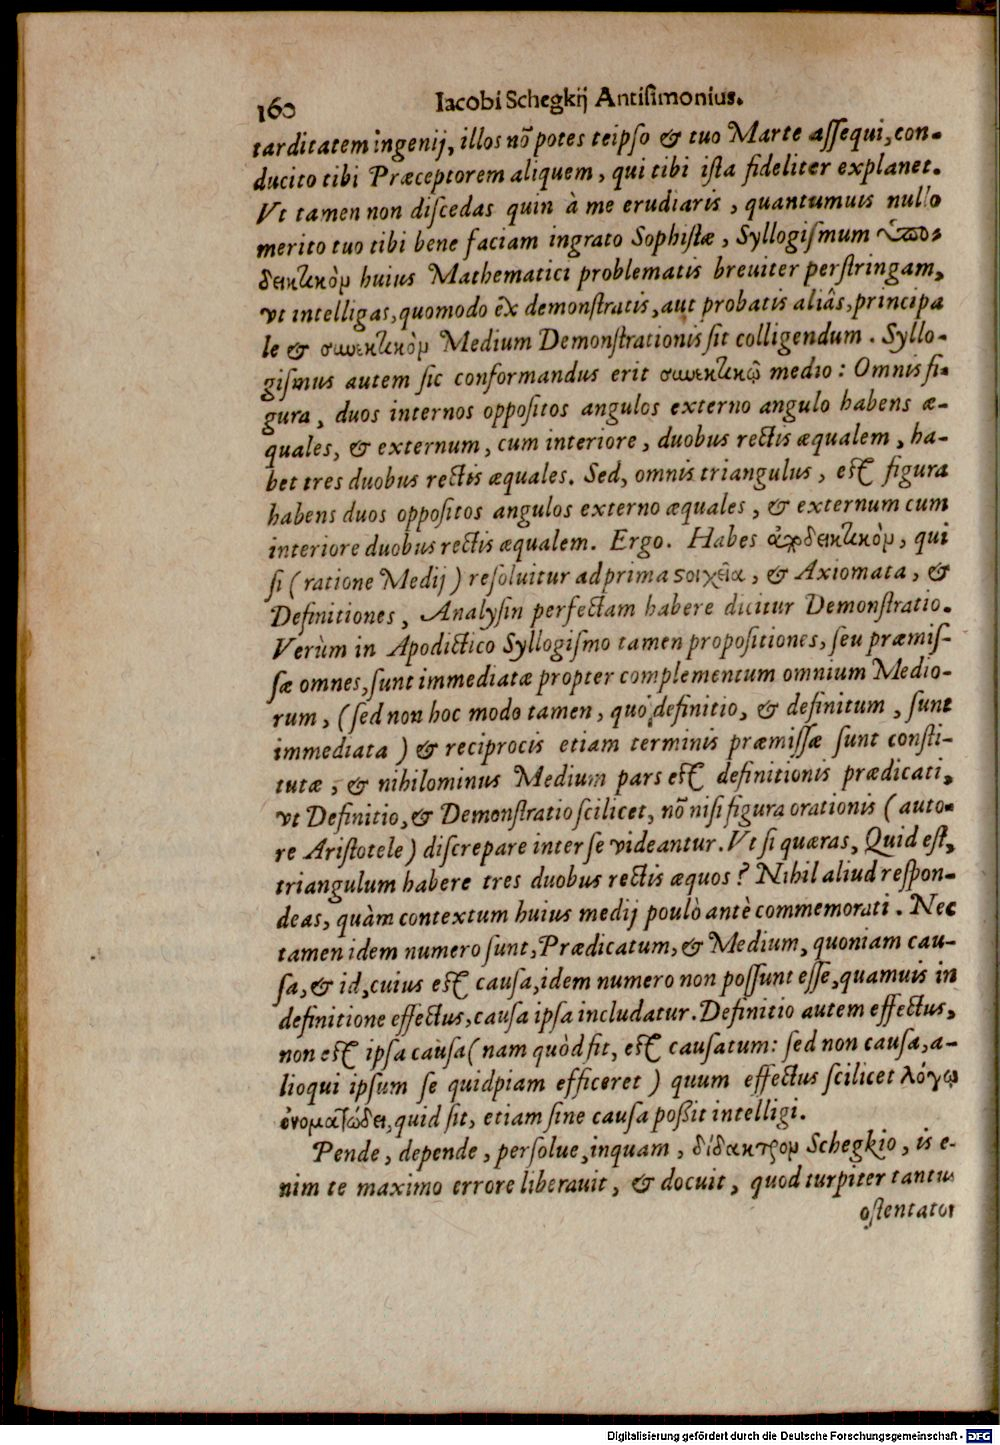 160 Iacobi Schegkij Antisimonius.
tarditatem ingenij, illos nō potes teipso & tuo Marte assequi, con-
ducito tibi Præceptorem aliquem, qui tibi ista fideliter explanet.
Vt tamen non discedas quin à me erudiaris, quantumuis nullo
merito tuo tibi bene faciam ingrato Sophistæ, Syllogismum ἀποδ-
δεικτικὸμ huius Mathematici problematis breuiter perstringam,
vt intelligas, quomodo ex demonstratis, aut probatis aliâs, principa
le & συνεκτικὸμ Medium Demonstrationis sit colligendum. Syllo-
gismus autem sic conformandus erit συνεκτικῷ medio: Omnis fi-
gura, duos internos oppositos angulos externo angulo habens æ-
quales, & externum, cum interiore, duobus rectis æqualem, ha-
bet tres duobus rectis æquales. Sed, omnis triangulus, est figura
habens duos oppositos angulos externo æquales, & externum cum
interiore duobus rectis æqualem. Ergo. Habes ἀποδεικτικὸμ, qui
si (ratione Medij) resoluitur ad prima ϛοιχεῖα, & Axiomata, &
Definitiones, Analysin perfectam habere dicitur Demonstratio.
Verùm in Apodictico Syllogismo tamen propositiones, seu præmis-
sæ omnes, sunt immediatæ propter complementum omnium Medio-
rum, (sed non hoc modo tamen, quo definitio, & definitum, sunt
immediata) & reciprocis etiam terminis præmissæ sunt consti-
tutæ, & nihilominus Medium pars est definitionis prædicati,
vt Definitio, & Demonstratio scilicet, nō nisi figura orationis (auto-
re Aristotele) discrepare inter se videantur. Vt si quæras, Quid est,
triangulum habere tres duobus rectis æquos? Nihil aliud respon-
deas, quàm contextum huius medij poulò antè commemorati. Nec
tamen idem numero sunt, Prædicatum, & Medium, quoniam cau-
sa, & id, cuius est causa, idem numero non possunt esse, quamuis in
definitione effectus, causa ipsa includatur. Definitio autem effectus,
non est ipsa causa (nam quòd fit, est causatum: sed non causa, a-
lioqui ipsum se quidpiam efficeret) quum effectus scilicet λόγῳ
ὀνοματώδει, quid sit, etiam sine causa poßit intelligi.
Pende, depende, persolue, inquam, δίδακτρομ Schegkio, is e-
nim te maximo errore liberauit, & docuit, quod turpiter tantus
ostentator
Digitalisierung gefördert durch die Deutsche Forschungsgemeinschaft - DFG